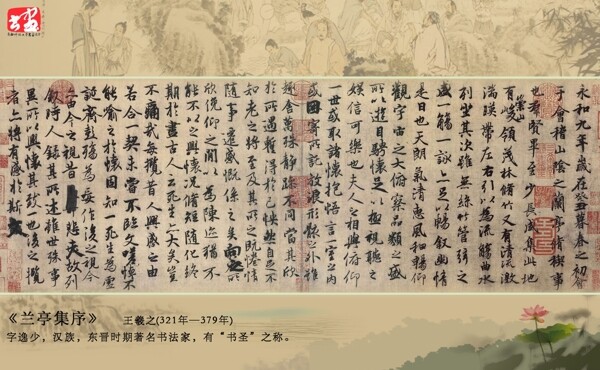 永和九年歲在癸丑暮春之初會
于會稽山陰之蘭亭脩稧事
也羣賢畢至少長咸集此地
有崇山峻領茂林脩竹又有清流激
湍暎帶左右引以為流觴曲水
列坐其次雖無絲竹管弦之
盛一觴一詠亦足以暢敘幽情
是日也天朗氣清惠風和暢仰
觀宇宙之大俯察品類之盛
所以遊目騁懷足以極視聽之
娛信可樂也夫人之相與俯仰
一世或取諸懷抱悟言一室之內
或因寄所託放浪形骸之外雖
趣舍萬殊靜躁不同當其欣
於所遇蹔得於己怏然自足不
知老之將至及其所之既惓情
隨事遷感慨係之矣向之所
欣俛仰之閒以為陳迹猶不
能不以之興懷況脩短隨化終
期於盡古人云死生亦大矣豈
不痛哉每攬昔人興感之由
若合一契未嘗不臨文嗟悼不
能喻之於懷固知一死生為虛
誕齊彭殤為妄作後之視今
亦由今之視昔悲夫故列
敘時人錄其所述雖世殊事
異所以興懷其致一也後之攬
者亦將有感於斯文
《兰亭集序》 王羲之(321年—379年)
字逸少，汉族，东晋时期著名书法家，有“书圣”之称。